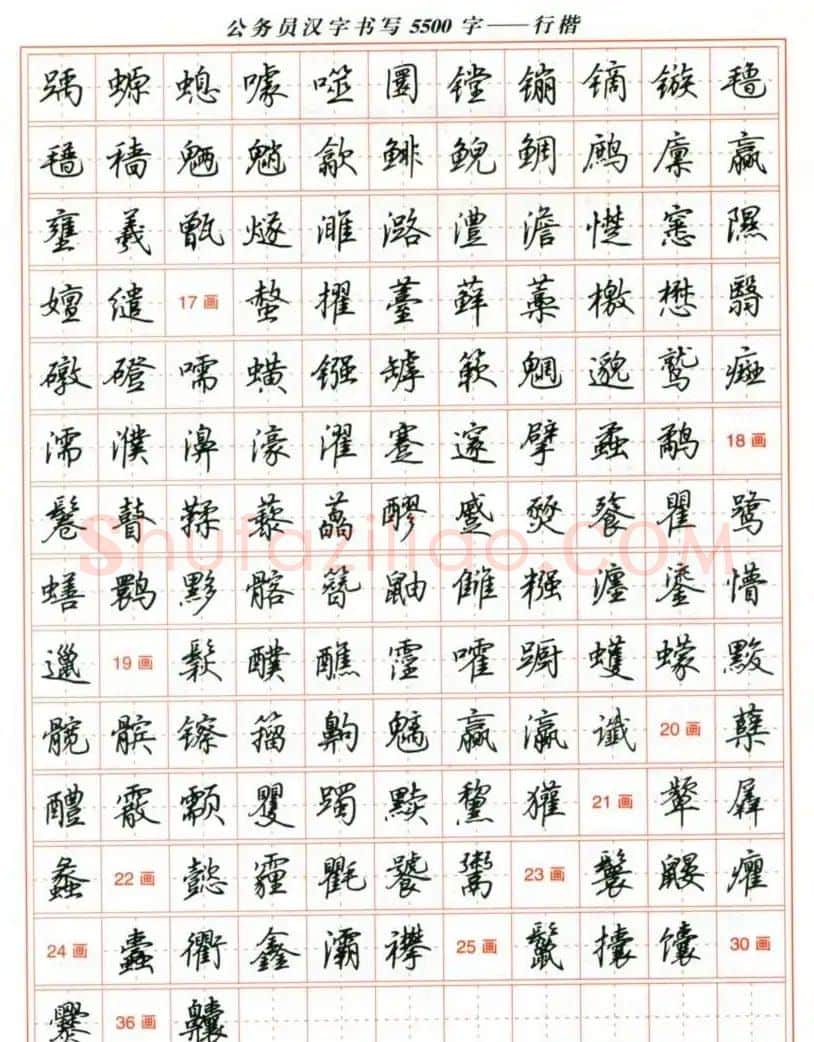 公务员汉字书写 5500 字——行楷
踽 螈 螅 噱 噬 圜 镗 镚 镝 镞 氇
氆 穑 魉 魈 歙 鲱 鲵 鲷 鹧 廪 嬴
壅 羲 甑 燧 濉 潞 澧 澹 憷 窸 隰
嬗 缱 17画 螯 擢 薹 藓 藁 檄 懋 翳
礅 磴 嚅 蟥 镪 罅 簌 魍 邈 鹫
濡 濮 濞 濠 濯 蹇 邃 擘 蟊 鹬 18画
鬈 瞽 鞣 藜 藠 醪 蹙 燹 餮 瞿 鹭
蟮 鹮 黟 髂 簪 鼬 雠 糨 瀍 鎏 懵
邋 19画 鬏 醭 醮 霪 嚯 蹰 蠖 蠓 黢
髋 髌 镲 籀 齁 魑 羸 瀛 谶 20画 蘖
醴 霰 颥 矍 躅 黩 黧 獾 21画 颦 羼
蠡 22画 懿 霾 氍 饕 鬻 23画 鬟 鼹 癯
24画 蠹 衢 鑫 灞 襻 25画 鬣 攮 馕 30画
爨 36画 齉
Shufaziliao.COM